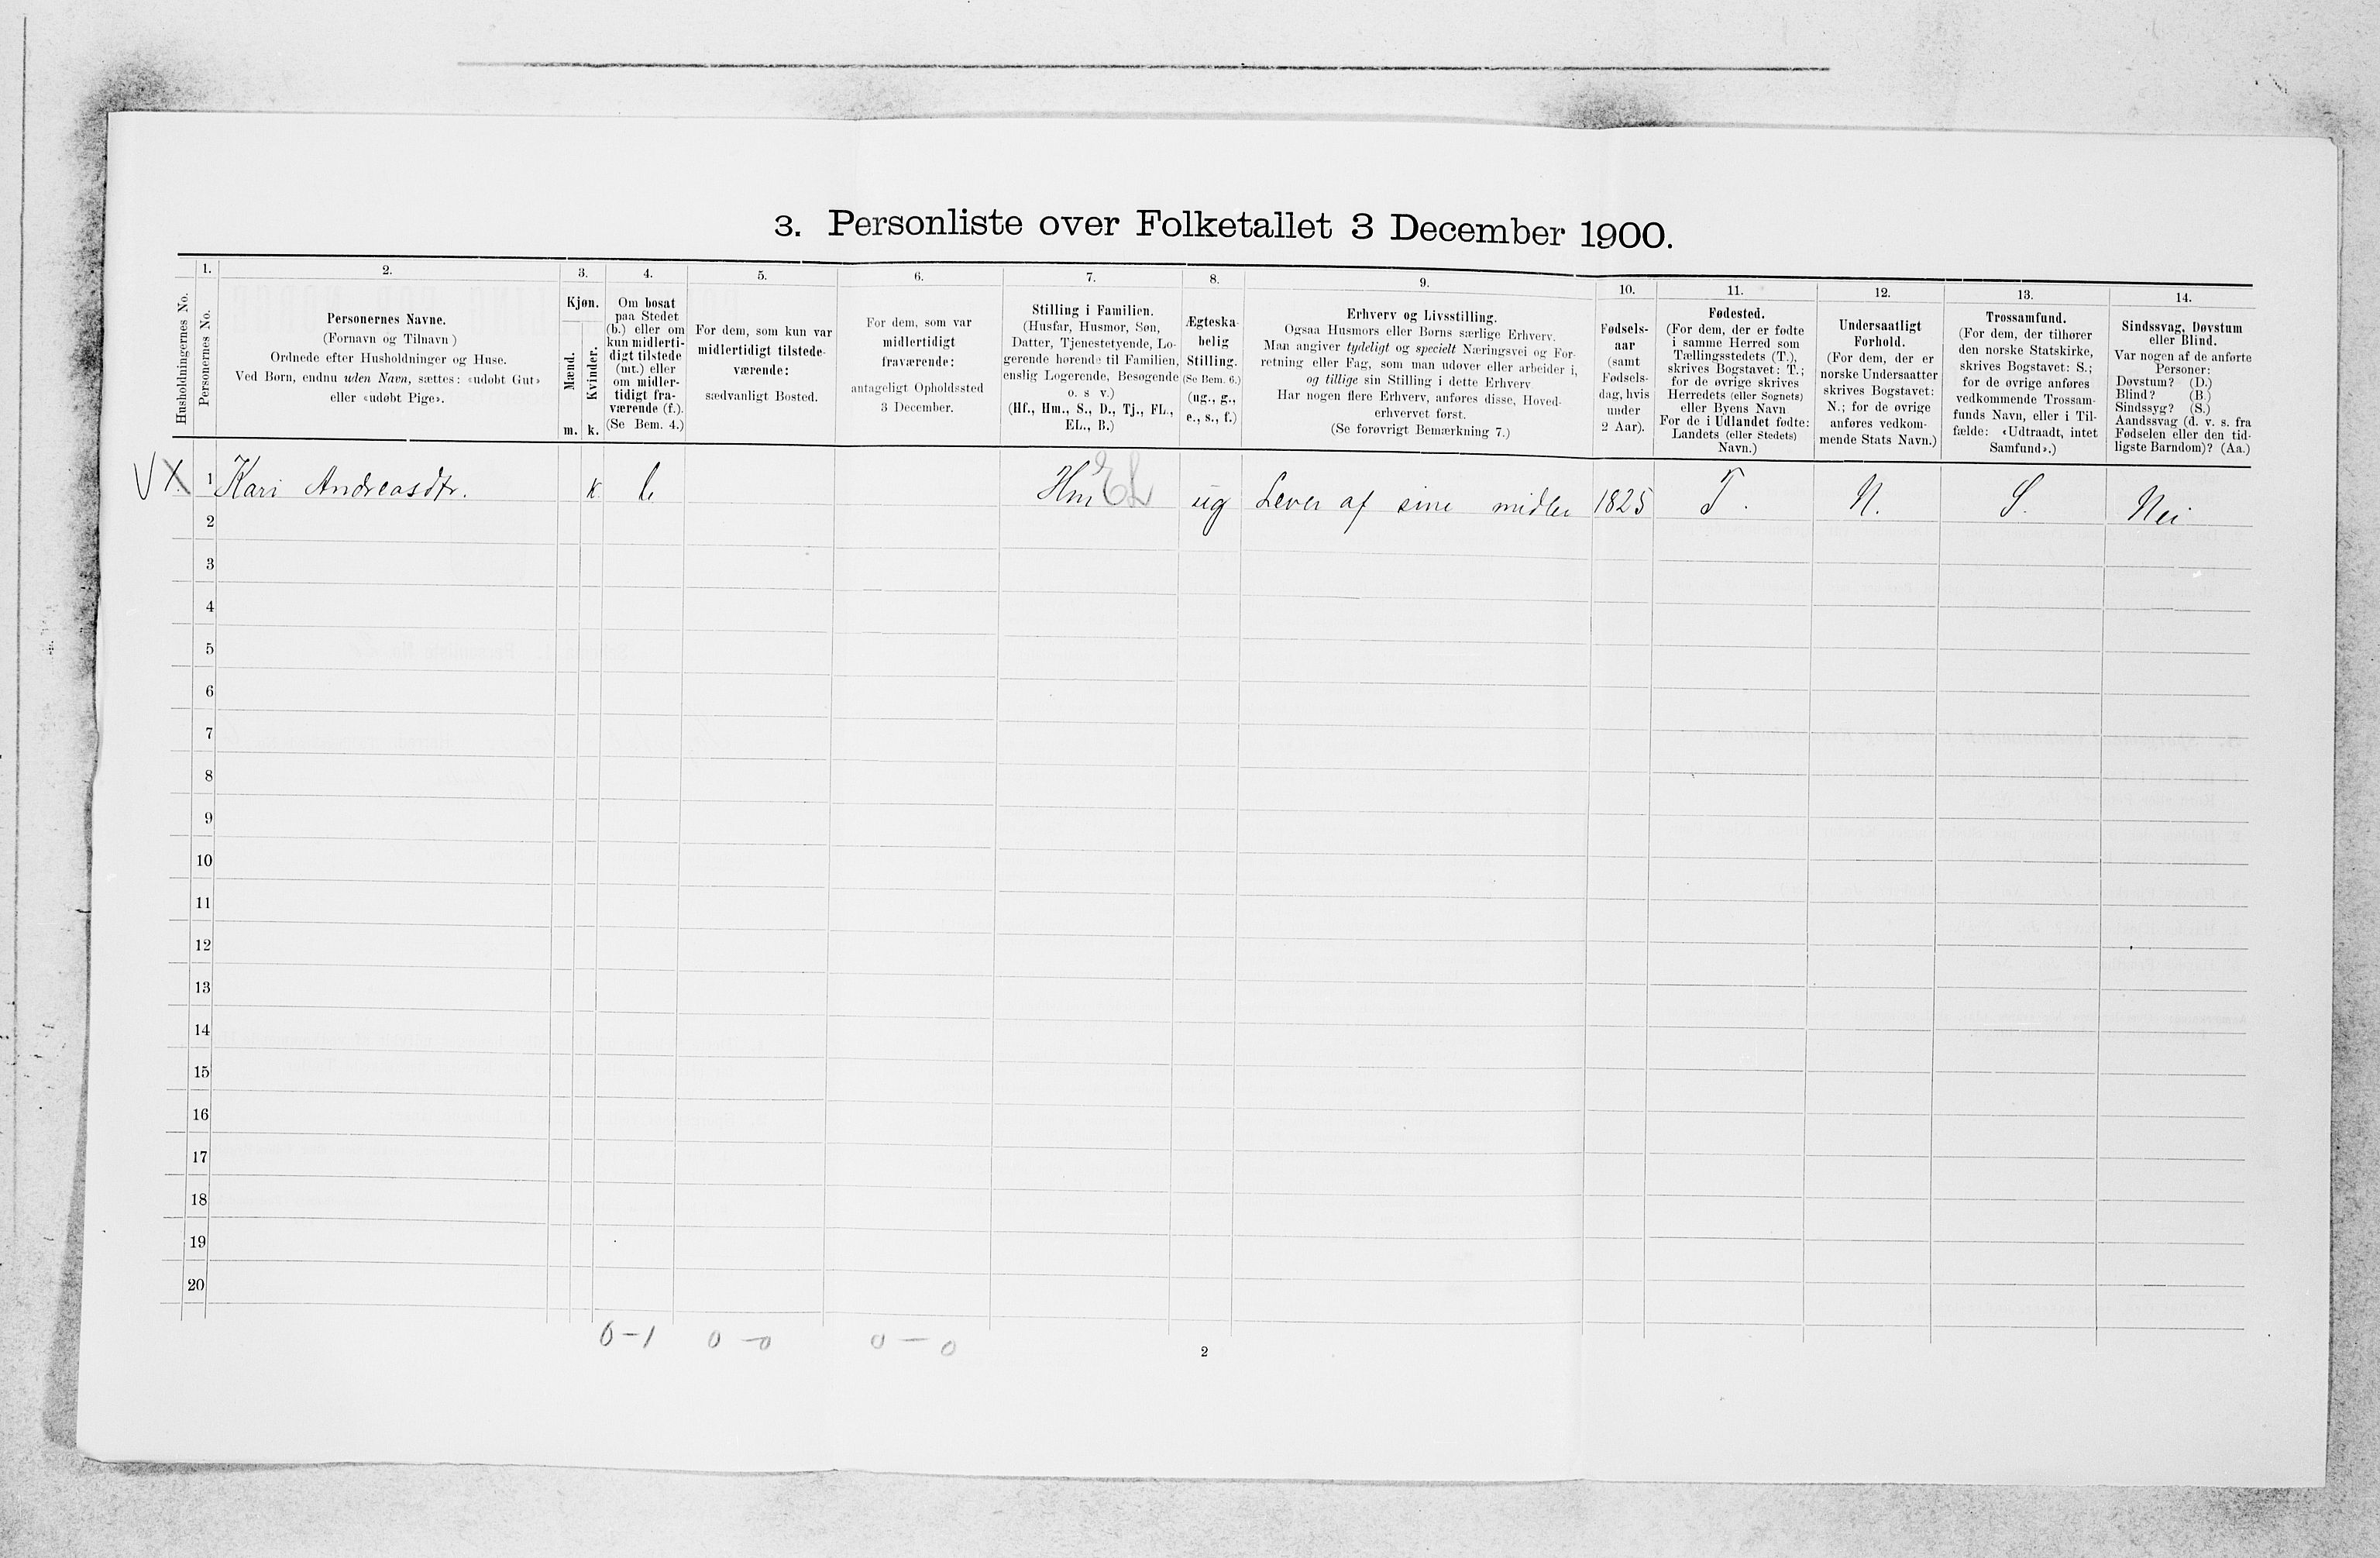 3. Personliste over Folketallet 3 December 1900.
Husholdningernes No.
1.
Personernes No.
2.
Personernes Navne.
(Fornavn og Tilnavn)
Ordnede efter Husholdninger og Huse.
Ved Børn, endnu uden Navn, sættes: «udøbt Gut»
eller «udøbt Pige».
3.
Kjøn.
Mænd.
Kvinder.
m. k.
4.
Om bosat
paa Stedet
(b.) eller om
kun midlerti-
digt tilstede
(mt.) eller
om midler-
tidigt fra-
værende (f.).
(Se Bem. 4.)
5.
For dem, som kun var
midlertidigt tilstede-
værende:
sædvanligt Bosted.
6.
For dem, som var
midlertidigt
fraværende:
antageligt Opholdssted
3 December.
7.
Stilling i Familien.
(Husfar, Husmor, Søn,
Datter, Tjenestetyende, Lo-
gerende hørende til Familien,
enslig Logerende, Besøgende
o. s v.)
(Hf., Hm., S., D., Tj., FL.,
EL., B.)
8.
Ægteska-
belig
Stilling.
(Se Bem. 6.)
(ug., g.,
e., s., f.)
9.
Erhverv og Livsstilling.
Ogsaa Husmors eller Børns særlige Erhverv.
Man angiver tydeligt og specielt Næringsvei og For-
retning eller Fag, som man udøver eller arbeider i,
og tillige sin Stilling i dette Erhverv
Har nogen flere Erhverv, anføres disse, Hoved-
erhvervet først.
(Se forøvrigt Bemærkning 7.)
10.
Fødsels-
aar
(samt
Fødsels-
dag, hvis
under
2 Aar).
11.
Fødested.
(For dem, der er fødte
i samme Herred som
Tællingsstedets (T.),
skrives Bogstavet: T.;
for de øvrige skrives
Herredets (eller Sognets)
eller Byens Navn
For de i Udlandet fødte:
Landets (eller Stedets)
Navn.)
12.
Undersaatligt
Forhold.
(For dem, der er
norske Undersaatter
skrives Bogstavet:
N.; for de øvrige
anføres vedkom-
mende Stats Navn.)
13.
Trossamfund.
(For dem, der tilhører
den norske Statskirke,
skrives Bogstavet: S.;
for de øvrige anføres
vedkommende Trossam-
funds Navn, eller i Til-
fælde: «Udtraadt, intet
Samfund».)
14.
Sindssvag, Døvstum
eller Blind.
Var nogen af de anførte
Personer:
Døvstum? (D.)
Blind? (B.)
Sindssyg? (S.)
Aandssvag (d. v. s. fra
Fødselen eller den tid-
ligste Barndom)? (Aa.)
1 Kari Andreasdtr. k b. Hm EL ug Lever af sine midler 1825 T. N. S. Nei
2
3
4
5
6
7
8
9
10
11
12
13
14
15
16
17
18
19
20
0-1 0-0 0-0
2